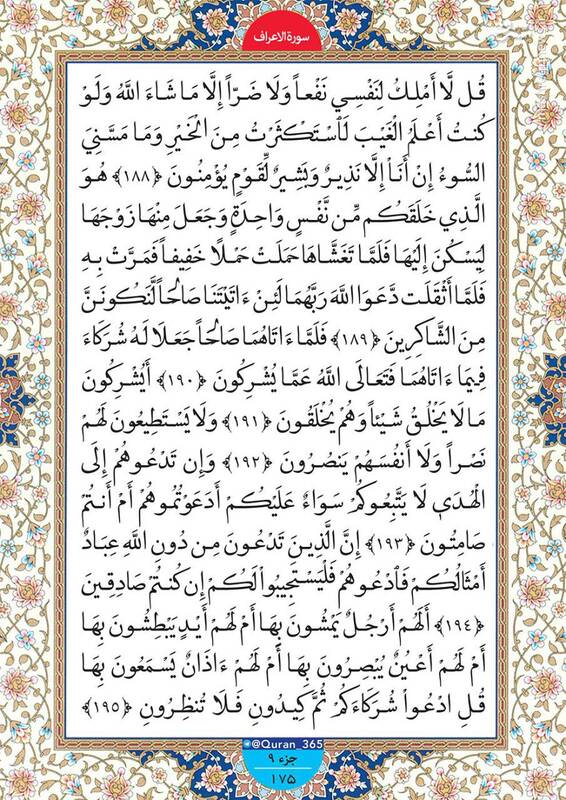 سورة الاعراف
قُل لَّا أَمْلِكُ لِنَفْسِي نَفْعاً وَلَا ضَرّاً إِلَّا مَا شَاءَ اللَّهُ وَلَوْ
كُنتُ أَعْلَمُ الْغَيْبَ لَاسْتَكْثَرْتُ مِنَ الْخَيْرِ وَمَا مَسَّنِيَ
السُّوءُ إِنْ أَنَاْ إِلَّا نَذِيرٌ وَبَشِيرٌ لِّقَوْمٍ يُؤْمِنُونَ ﴿١٨٨﴾ هُوَ
الَّذِي خَلَقَكُم مِّن نَّفْسٍ وَاحِدَةٍ وَجَعَلَ مِنْهَا زَوْجَهَا
لِيَسْكُنَ إِلَيْهَا فَلَمَّا تَغَشَّاهَا حَمَلَتْ حَمْلًا خَفِيفاً فَمَرَّتْ بِهِ
فَلَمَّا أَثْقَلَت دَّعَوَا اللَّهَ رَبَّهُمَا لَئِنْ ءَاتَيْتَنَا صَالِحاً لَّنَكُونَنَّ
مِنَ الشَّاكِرِينَ ﴿١٨٩﴾ فَلَمَّا ءَاتَاهُمَا صَالِحاً جَعَلَا لَهُ شُرَكَاءَ
فِيمَا ءَاتَاهُمَا فَتَعَالَى اللَّهُ عَمَّا يُشْرِكُونَ ﴿١٩٠﴾ أَيُشْرِكُونَ
مَا لَا يَخْلُقُ شَيْئاً وَهُمْ يُخْلَقُونَ ﴿١٩١﴾ وَلَا يَسْتَطِيعُونَ لَهُمْ
نَصْراً وَلَا أَنفُسَهُمْ يَنصُرُونَ ﴿١٩٢﴾ وَإِن تَدْعُوهُمْ إِلَى
الْهُدَىٰ لَا يَتَّبِعُوكُمْ سَوَاءٌ عَلَيْكُمْ أَدَعَوْتُمُوهُمْ أَمْ أَنتُمْ
صَامِتُونَ ﴿١٩٣﴾ إِنَّ الَّذِينَ تَدْعُونَ مِن دُونِ اللَّهِ عِبَادٌ
أَمْثَالُكُمْ فَادْعُوهُمْ فَلْيَسْتَجِيبُواْ لَكُمْ إِن كُنتُمْ صَادِقِينَ
﴿١٩٤﴾ أَلَهُمْ أَرْجُلٌ يَمْشُونَ بِهَا أَمْ لَهُمْ أَيْدٍ يَبْطِشُونَ بِهَا
أَمْ لَهُمْ أَعْيُنٌ يُبْصِرُونَ بِهَا أَمْ لَهُمْ ءَاذَانٌ يَسْمَعُونَ بِهَا
قُلِ ادْعُواْ شُرَكَاءَكُمْ ثُمَّ كِيدُونِ فَلَا تُنظِرُونِ ﴿١٩٥﴾
@Quran_365
جزء ٩
١٧٥